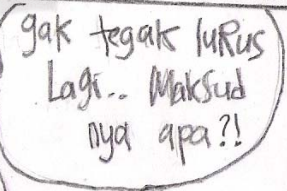 gak tegak luRus
Lagi.. Maksud
nya apa?!